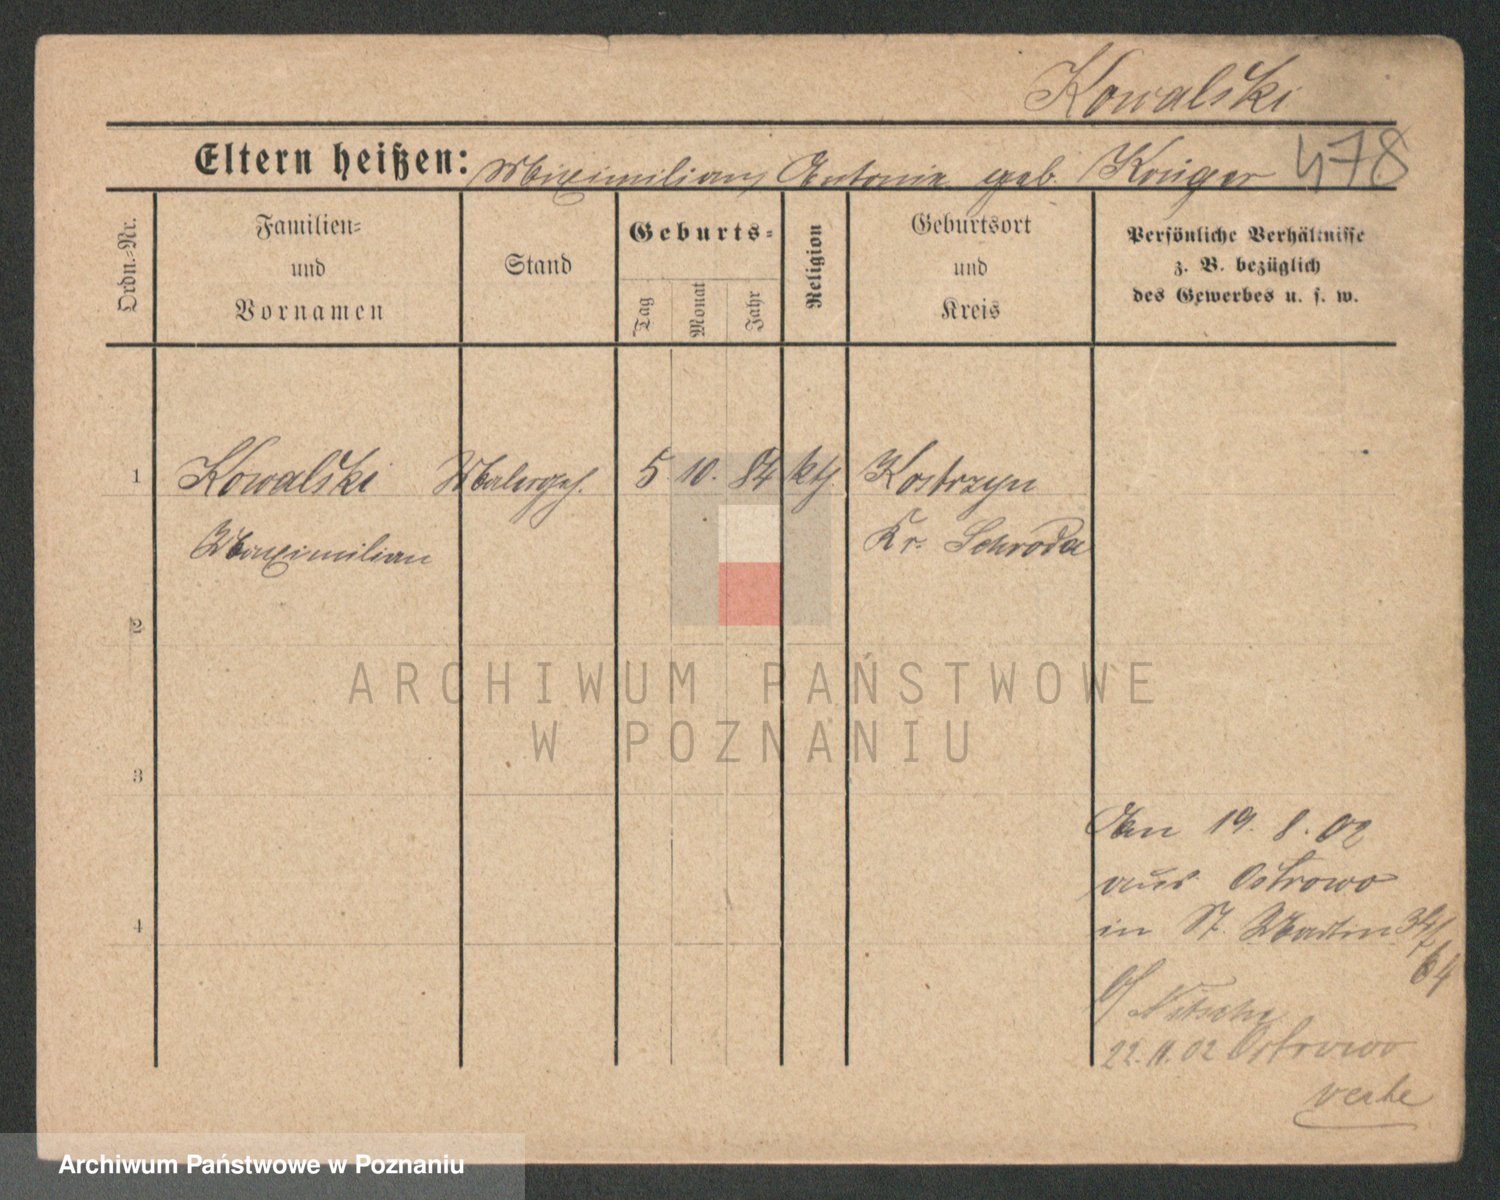 Kowalski
478
Eltern heißen: Maximilian, Antonie geb. Krüger
Ordn.-Nr.
Familien-
und
Vornamen
Stand
Geburts-
Tag
Monat
Jahr
Religion
Geburtsort
und
Kreis
Persönliche Verhältnisse
z. B. bezüglich
des Gewerbes u. s. w.
1 Kowalski Malergeh. 5. 10. 84 kth. Kostrzyn
Maximilian Kr. Schroda
2
3
4
An 19. 8. 02
aus Ostrowo
in St. Martin 34/
64
b/ Nitsche
22. 11. 02 Ostrowo
ARCHIWUM PAŃSTWOWE
W POZNANIU
Archiwum Państwowe w Poznaniu